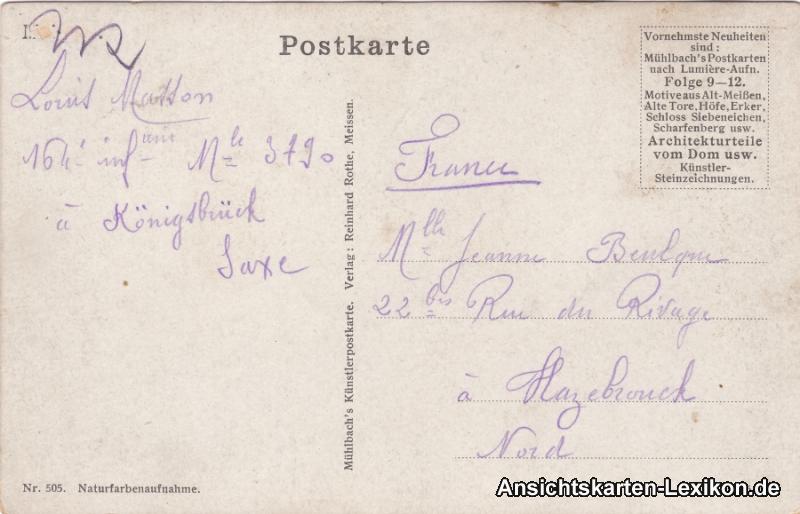 Postkarte
Louis Masson
164e inf rie Mle 3790
à Königsbrück
Saxe
Mühlbach's Künstlerpostkarte. Verlag: Reinhard Rothe, Meissen.
Vornehmste Neuheiten
sind:
Mühlbach's Postkarten
nach Lumière-Aufn.
Folge 9—12.
Motive aus Alt-Meißen,
Alte Tore, Höfe, Erker,
Schloss Siebeneichen,
Scharfenberg usw.
Architekturteile
vom Dom usw.
Künstler-
Steinzeichnungen.
France
Mlle Jeanne
22 bis Rue du Rivage
à Hazebrouck
Nord
Nr. 505. Naturfarbenaufnahme.
Ansichtskarten-Lexikon.de